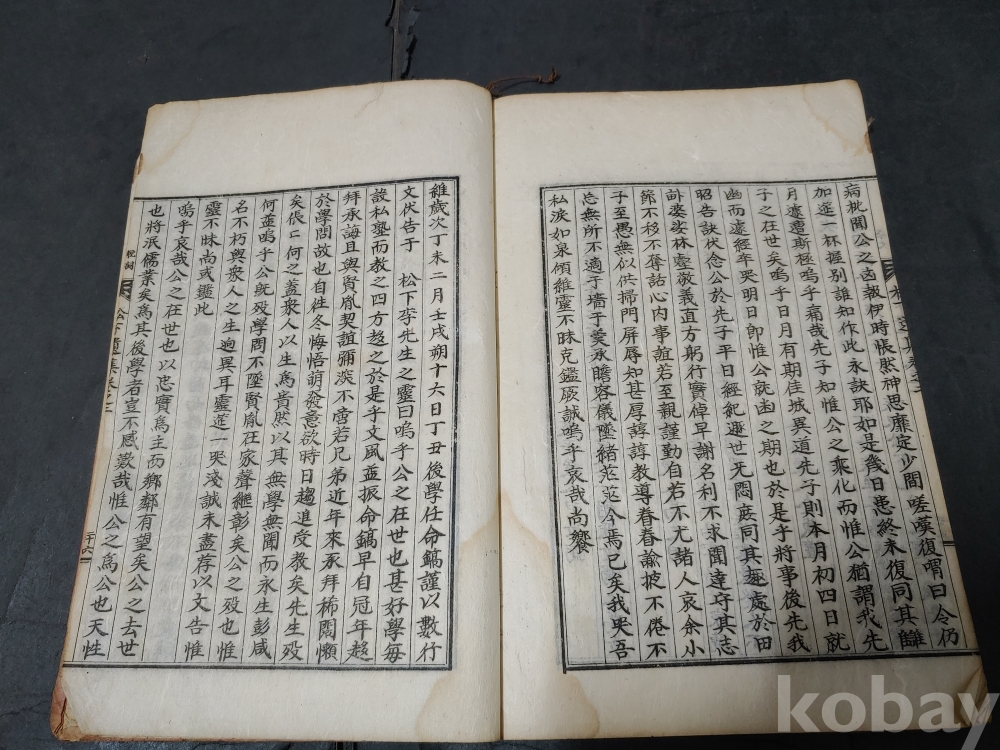 病枕聞公之凶報伊時悵然神思靡定少間嗟嘆復喟曰令仍
加莚一杯握別誰知作此永訣耶如是幾日患終未復同其讎
月遽遭斯極嗚乎痛哉先子知惟公之乘化而惟公猶謂我先
子之在世矣嗚乎日月有期佳城異道先子則本月初四日就
幽而遽經卒哭明日即惟公就凾之期也於是乎將事後先我
昭告訣伏念公於先子平日經紀遯世无悶庶同其趣處於田
訃婆娑林壑敬義直方躬行實倬早謝名利不求聞達守其志
節不移不奪話心內事誼若至親謹勤自若不尤諸人哀余小
子至愚無似供掃門屏辱知甚厚諄諄教導眷眷諭披不倦不
怠無所不適于墻于羹承瞻容儀墜緒茫茫今焉已矣我哭吾
私淚如泉傾維靈不昧克鑑厥誠嗚乎哀哉尚饗
維歲次丁未二月壬戌朔十六日丁丑後學任命鎬謹以數行
文伏告于 松下李先生之靈曰嗚乎公之在世也甚好學每
設私塾而教之四方趍之於是乎文風益振命鎬早自冠年趍
拜承誨且與賢胤契誼彌深不啻若兄弟近年來承拜稀闊懶
於學問故也自徃冬悔悟萌發意欲時日趨進受教矣先生歿
矣倀二何之蓋衆人以生爲貴然以其無學無聞而永生彭咸
何益嗚乎公旣歿學問不墜賢胤在家聲繼彰矣公之歿也惟
名不朽與衆人之生逈異耳靈莚一哭淺誠未盡存以文告惟
靈不昧尚或鑑此
嗚乎哀哉公之在世也以忠實爲主而鄉鄰有望矣公之去世
也將泯儒業矣爲其後學者豈不感歎哉惟公之爲公也天性
松下遺集卷之二
十六
kobay